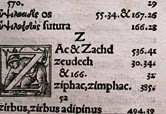 570. 20
os 55.34.&167.26
sutura 166.28
Z
Ac & Zachd 536.41
zeudech 30.34.
&166. 32
ziphac, zimphac. 385.
52
zirbus, zirbus adipinus 494.39